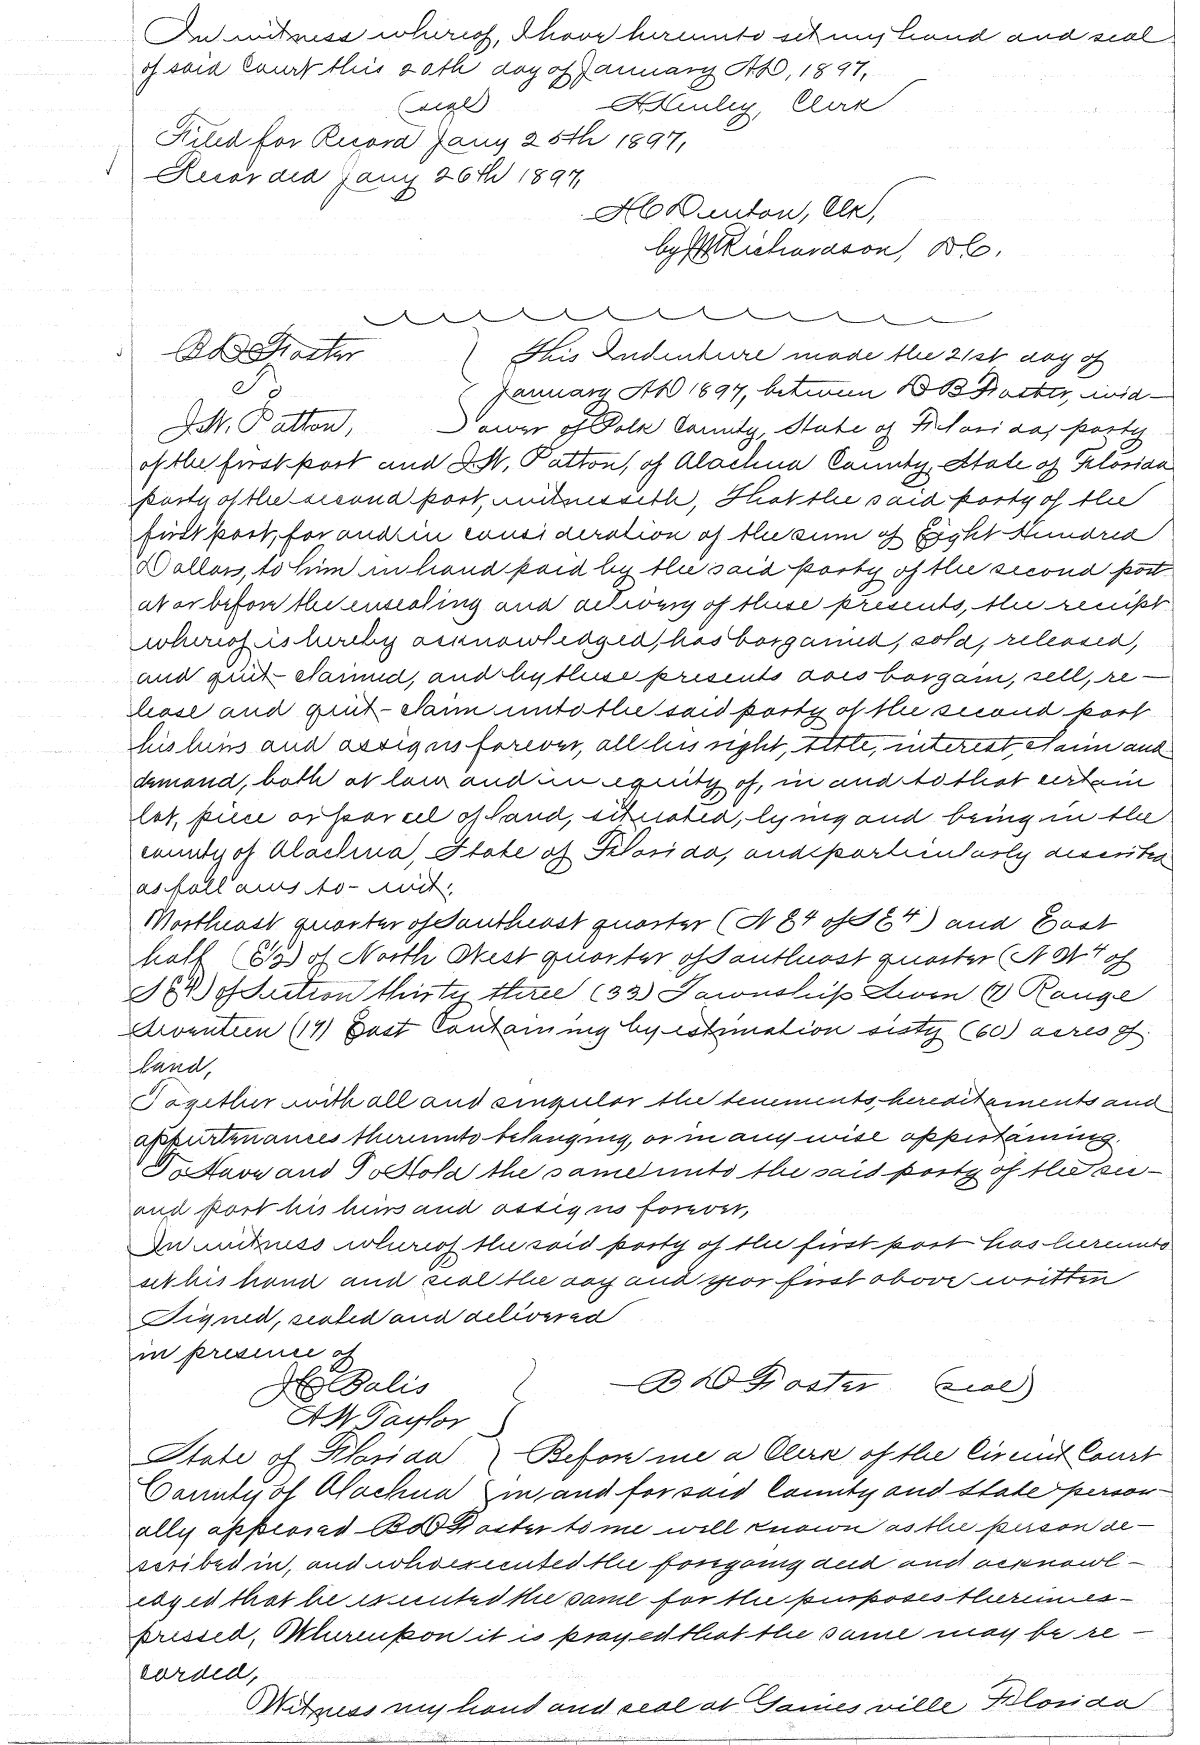 In witness whereof, I have hereunto set my hand and seal
of said Court this 20th day of January AD, 1897,
(seal) Clerk
Filed for Record Jany 25th 1897,
Recorded Jany 26th 1897,
H C Denton, Clk,
by Richardson, D.C.
B D Foster
To
J.W. Patton,
This Indenture made the 21st day of
January AD 1897, between D B Foster, wid-
ower of Polk County, State of Florida, party
of the first part and J.W. Patton, of Alachua County, State of Florida
party of the second part, witnesseth, That the said party of the
first part, for and in consideration of the sum of Eight Hundred
Dollars, to him in hand paid by the said party of the second part
at or before the ensealing and delivery of these presents, the receipt
whereof is hereby acknowledged, has bargained, sold, released,
and quit-claimed, and by these presents does bargain, sell, re-
lease and quit-claim unto the said party of the second part
his heirs and assigns forever, all his right, title, interest, claim and
demand, both at law and in equity of, in and to that certain
lot, piece or parcel of land, situated, lying and being in the
county of Alachua, State of Florida, and particularly described
as follows to-wit:
Northeast quarter of Southeast quarter (N E4 of S E4) and East
half (E½) of North West quarter of Southeast quarter (N W4 of
S E4) of Section thirty three (33) Township Seven (7) Range
Seventeen (17) East Containing by estimation sixty (60) acres of
land,
Together with all and singular the tenements, hereditaments and
appurtenances thereunto belonging, or in any wise appertaining.
To Have and To Hold the same unto the said party of the sec-
ond part his heirs and assigns forever,
In witness whereof the said party of the first part has hereunto
set his hand and seal the day and year first above written
Signed, sealed and delivered
in presence of
Balis
A W Taylor
B D Foster (seal)
State of Florida
County of Alachua
Before me a Clerk of the Circuit Court
in, and for said County and State person-
ally appeared B D Foster to me well known as the person de-
scribed in, and who executed the foregoing deed and acknowl-
edged that he executed the same for the purposes therein ex-
pressed, Whereupon it is prayed that the same may be re-
corded,
Witness my hand and seal at Gainesville Florida